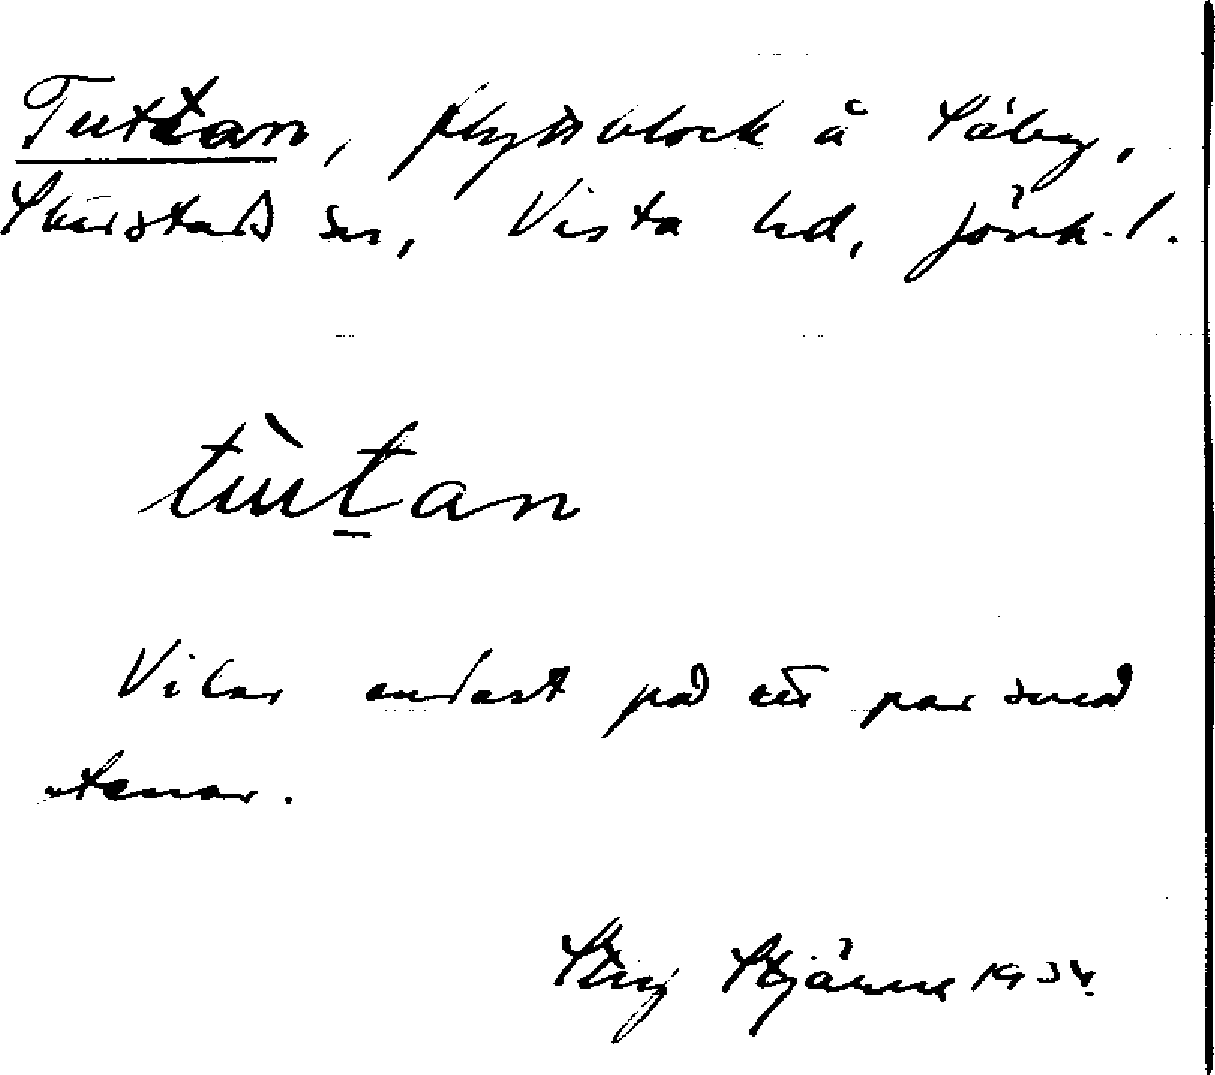 Tuttan, flyttblock å Säby,
Skärstads sn, Vista hd, Jönk. l.
tùtan
Vilar endast på ett par små
stenar.
Stig Stjärne 1934.